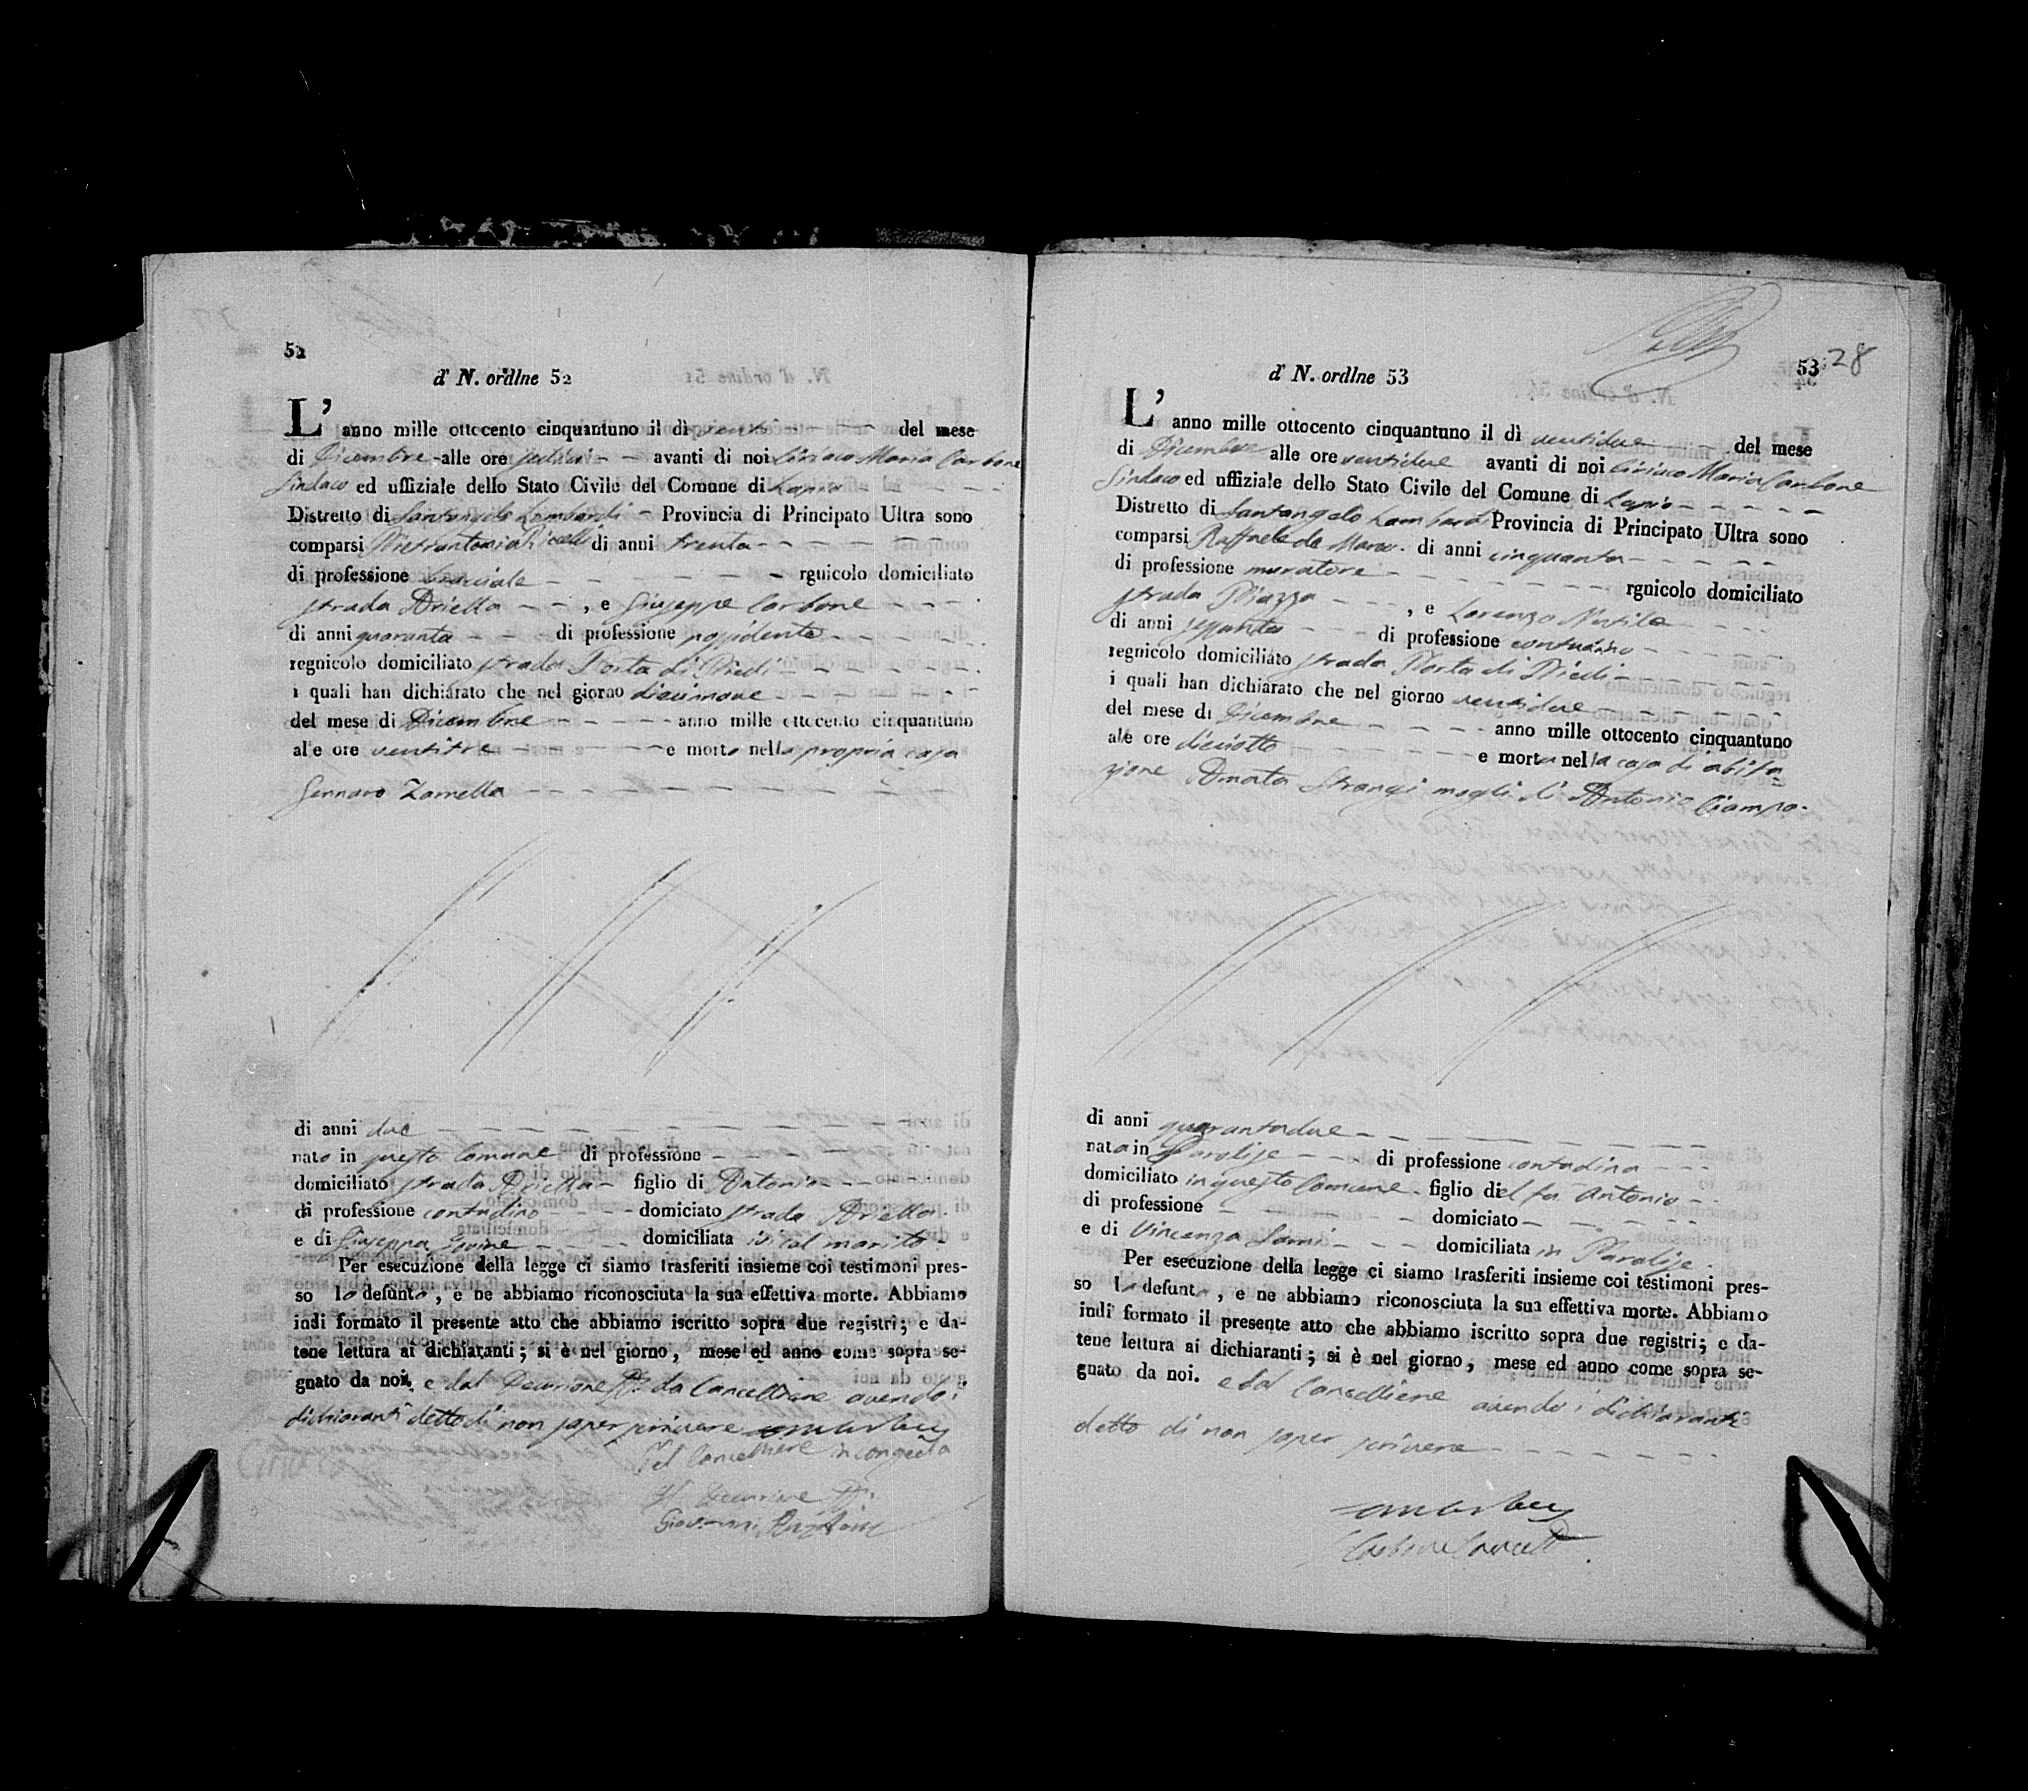 52
d' N. ordlne 52
L' anno mille ottocento cinquantuno il dì venti del mese
di Dicembre alle ore sedici avanti di noi Ciriaco Maria Carbone
Sindaco ed uffiziale dello Stato Civile del Comune di Lapio
Distretto di Santangelo Lombardi Provincia di Principato Ultra sono
comparsi Pietrantonio di anni trenta
di professione bracciale rgnicolo domiciliato
strada Ariella , e Giuseppe Carbone
di anni quaranta di professione possidente
regnicolo domiciliato strada Porta di Piedi
i quali han dichiarato che nel giorno diecinove
del mese di Dicembre anno mille ottocento cinquantuno
alle ore ventitre e morto nella propria casa
Gennaro Zarrella
di anni due
nato in questo Comune di professione
domiciliato strada Ariella figlio di Antonio
di professione contadino domiciato strada Ariella
e di Giuseppa Iovine domiciliata ivi col marito
Per esecuzione della legge ci siamo trasferiti insieme coi testimoni pres-
so lo defunto, e ne abbiamo riconosciuta la sua effettiva morte. Abbiamo
indi formato il presente atto che abbiamo iscritto sopra due registri; e da-
tene lettura ai dichiaranti; si è nel giorno, mese ed anno come sopra se-
gnato da noi, e dal Decurione da Cancelliere avendo i
dichiaranti detto di non saper scrivere
Pel Cancelliere in congedo
Il Decurione
Giovanni
53 28
d' N. ordlne 53
L' anno mille ottocento cinquantuno il dì ventidue del mese
di Dicembre alle ore ventidue avanti di noi Ciriaco Maria Carbone
Sindaco ed uffiziale dello Stato Civile del Comune di Lapio
Distretto di Santangelo Lombardi Provincia di Principato Ultra sono
comparsi Raffaele de Marco di anni cinquanta
di professione muratore rgnicolo domiciliato
strada Piazza , e Lorenzo
di anni sessanta di professione contadino
regnicolo domiciliato strada Porta di Piedi
i quali han dichiarato che nel giorno ventidue
del mese di Dicembre anno mille ottocento cinquantuno
alle ore dieciotto e morta nella casa di abita
zione Amata moglie di Antonio Ciampo
di anni quarantadue
nata in Parolise di professione contadina
domiciliato in questo Comune figlio del fu Antonio
di professione domiciato
e di Vincenza domiciliata in Parolise
Per esecuzione della legge ci siamo trasferiti insieme coi testimoni pres-
so la defunta, e ne abbiamo riconosciuta la sua effettiva morte. Abbiamo
indi formato il presente atto che abbiamo iscritto sopra due registri; e da-
tene lettura ai dichiaranti; si è nel giorno, mese ed anno come sopra se-
gnato da noi. e dal Cancelliere avendo i dichiaranti
detto di non saper scrivere